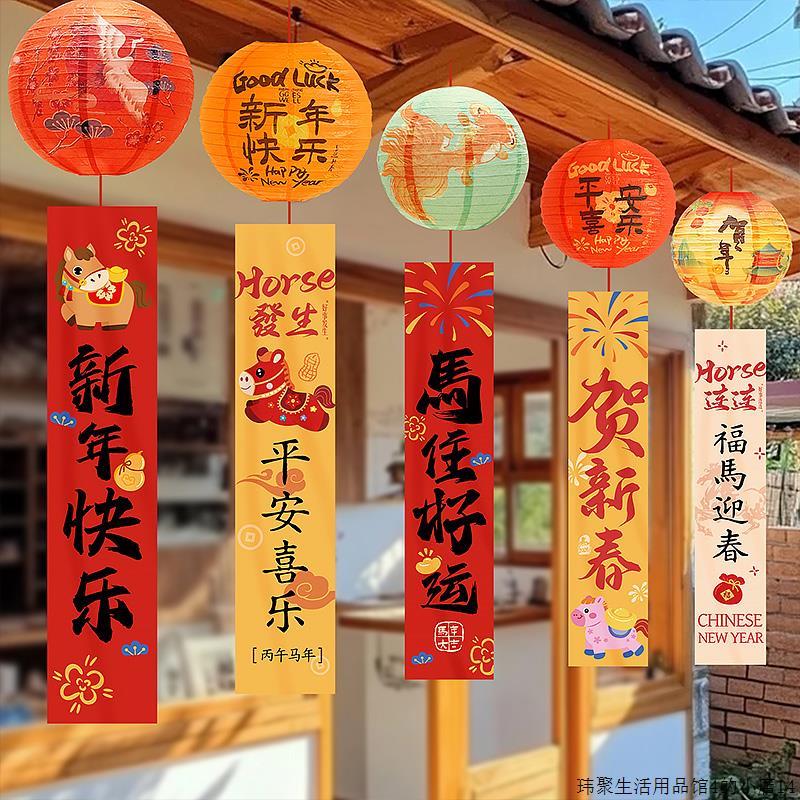 Good Luck
新年
快乐
Happy
New Year
Good Luck
平安
喜乐
Happy
New Year
贺年
新年快乐
Horse
發生
平安喜乐
[丙午马年]
馬住好运
贺新春
Horse
连连
福馬迎春
CHINESE
NEW YEAR
玮聚生活用品馆4的小店14